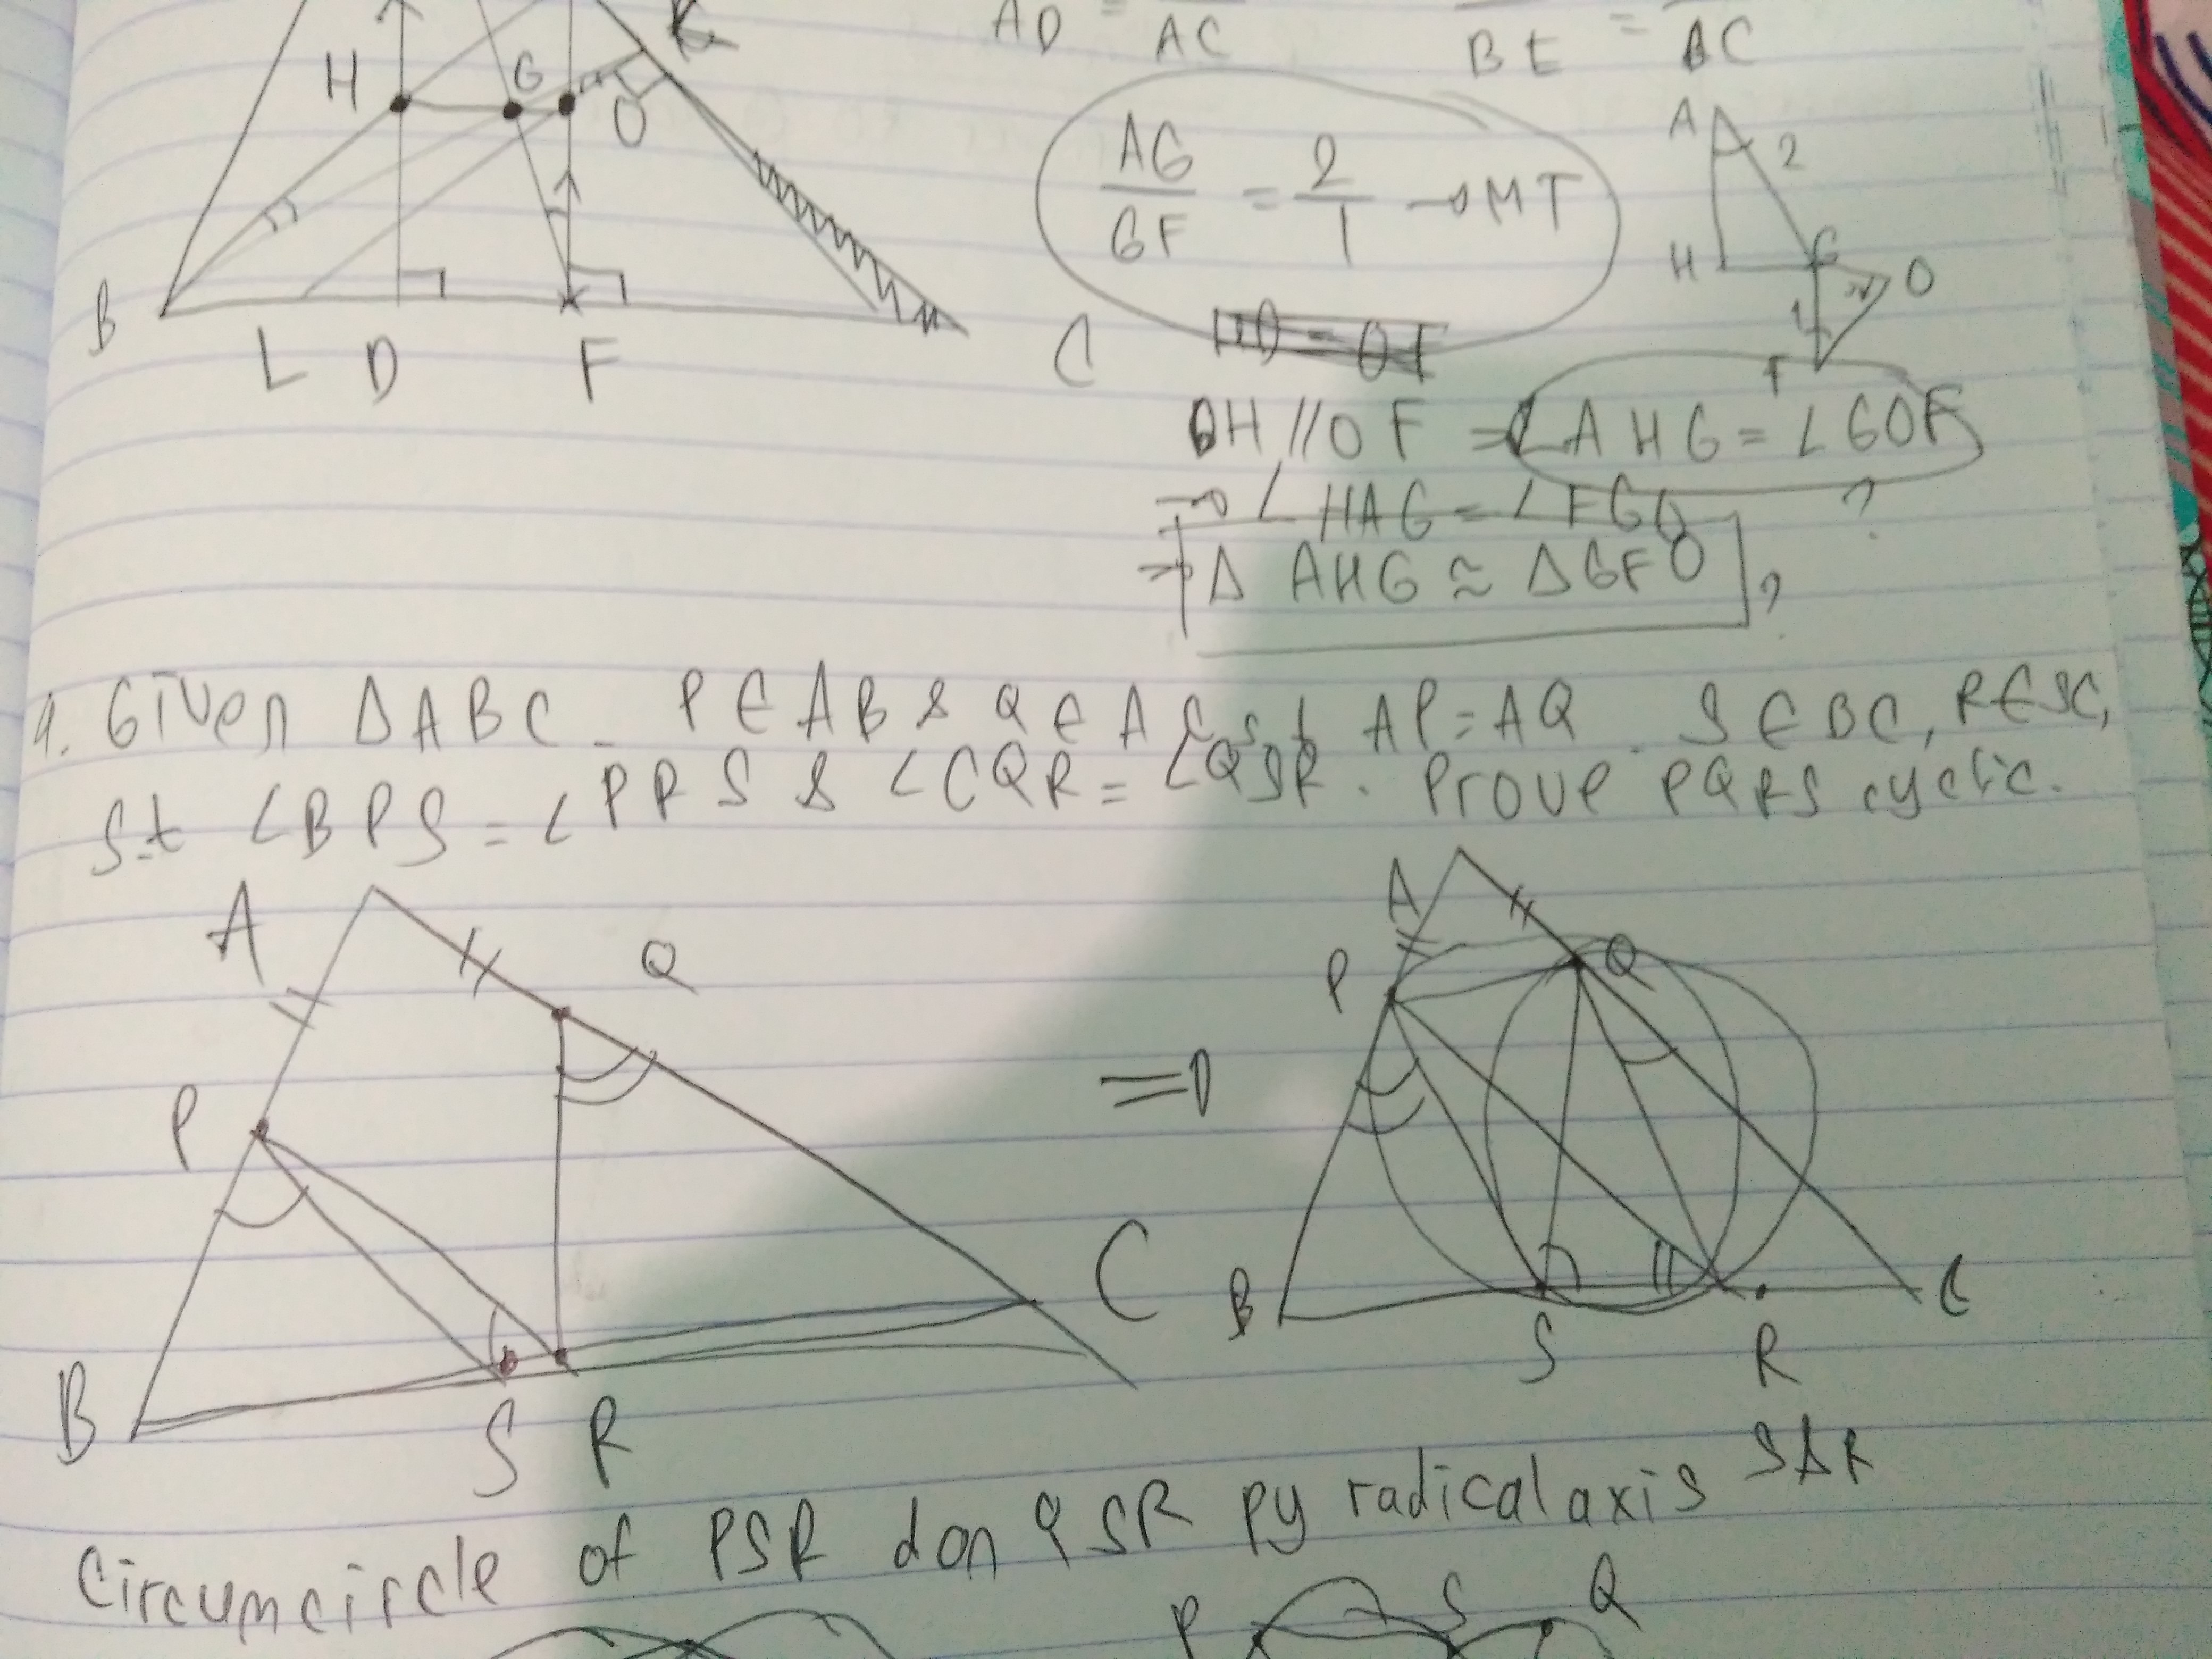 AD = AC
BE = BC
H G K
O
AG/GF = 2/1 → MT
A 2
H G O
1
F
B L D F C
DH // OF ⇒ ∠AHG = ∠GOF
→ ∠HAG = ∠FGO ?
⇒ Δ AHG ≈ ΔGFO ?
1. Given ΔABC. P ∈ AB & Q ∈ AC s.t AP = AQ. S ∈ BC, R ∈ SC,
s.t ∠BPS = ∠PRS & ∠CQR = ∠QSR. Prove PQRS cyclic.
A Q
P
B S R C
⇒
A
P Q
B S R C
Circumcircle of PSR dan QSR py radical axis SR
P S Q